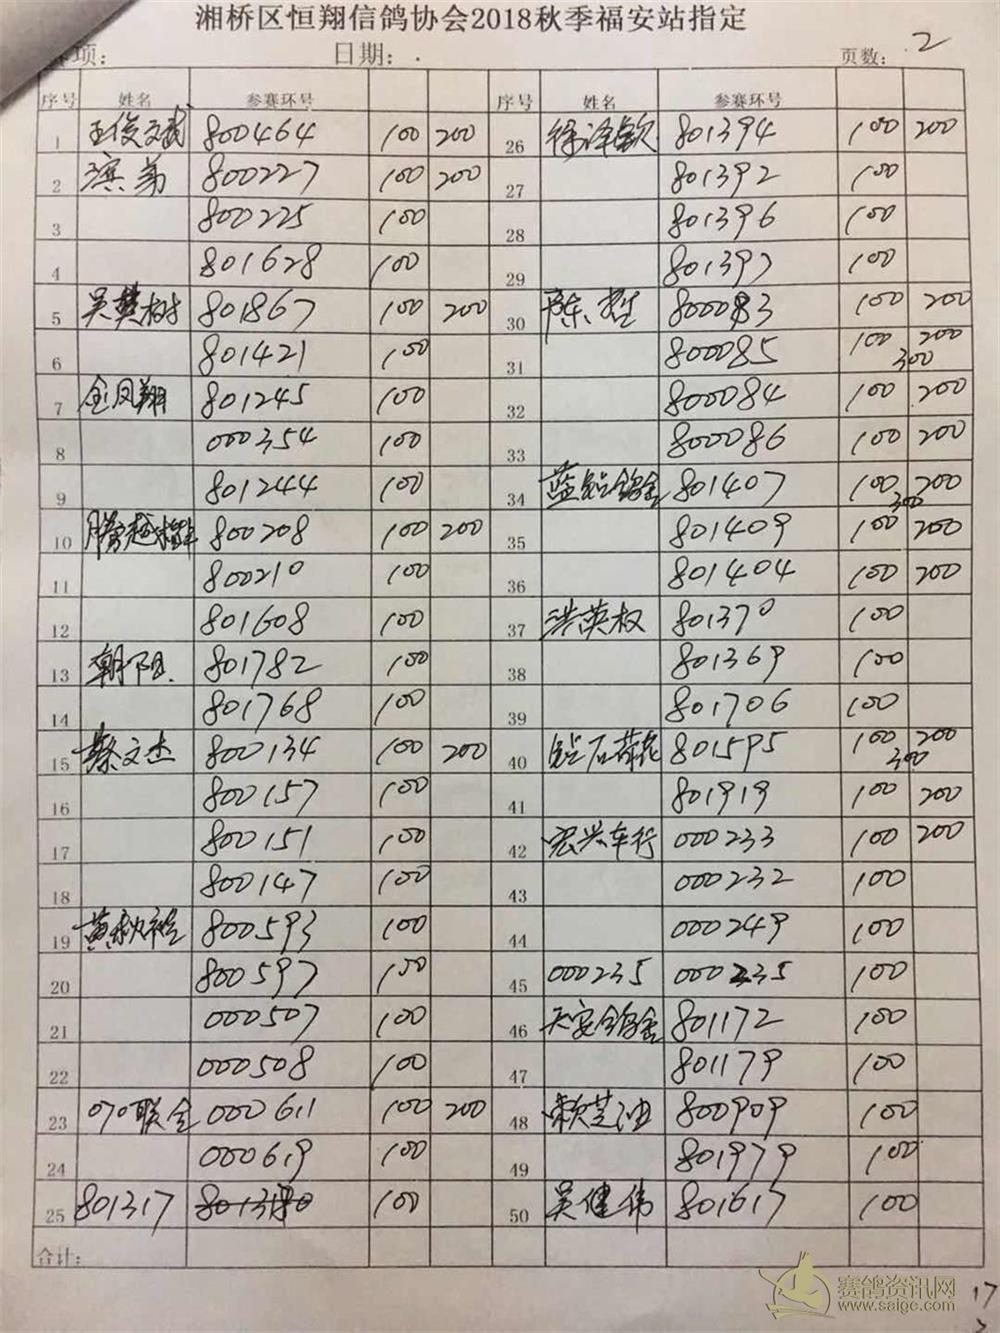 湘桥区恒翔信鸽协会2018秋季福安站指定
项: 日期: 页数: 2
序号 姓名 参赛环号 序号 姓名 参赛环号
1 王俊文武 800464 100 200 26 徐泽钦 801394 100 200
2 滨弟 800227 100 200 27 801392 100
3 800225 100 28 801396 100
4 801628 100 29 801397 100
5 吴樊树 801867 100 200 30 陈哲 800083 100 200
6 801421 100 31 800085 100 200 300
7 金凤翔 801245 100 32 800084 100 200
8 000354 100 33 800086 100 200
9 801244 100 34 蓝钻鸽舍 801407 100 200 300
10 腾越 800208 100 200 35 801409 100 200
11 800210 100 36 801404 100 200
12 801608 100 37 洪英权 801370 100
13 朝阳 801782 100 38 801369 100
14 801768 100 39 801706 100
15 蔡文杰 800134 100 200 40 钻石荷花 801595 100 200 300
16 800157 100 41 801919 100 200
17 800151 100 42 宏兴车行 000233 100 200
18 800147 100 43 000232 100
19 黄秋 800593 100 44 000249 100
20 800597 100 45 000235 000235 100
21 000507 100 46 天宏鸽舍 801172 100
22 000508 100 47 801179 100
23 070联合 000611 100 200 48 赖芝油 800909 100
24 000619 100 49 801979 100
25 801317 100 50 吴健伟 801617 100
合计:
17
赛鸽资讯网
www.saige.com